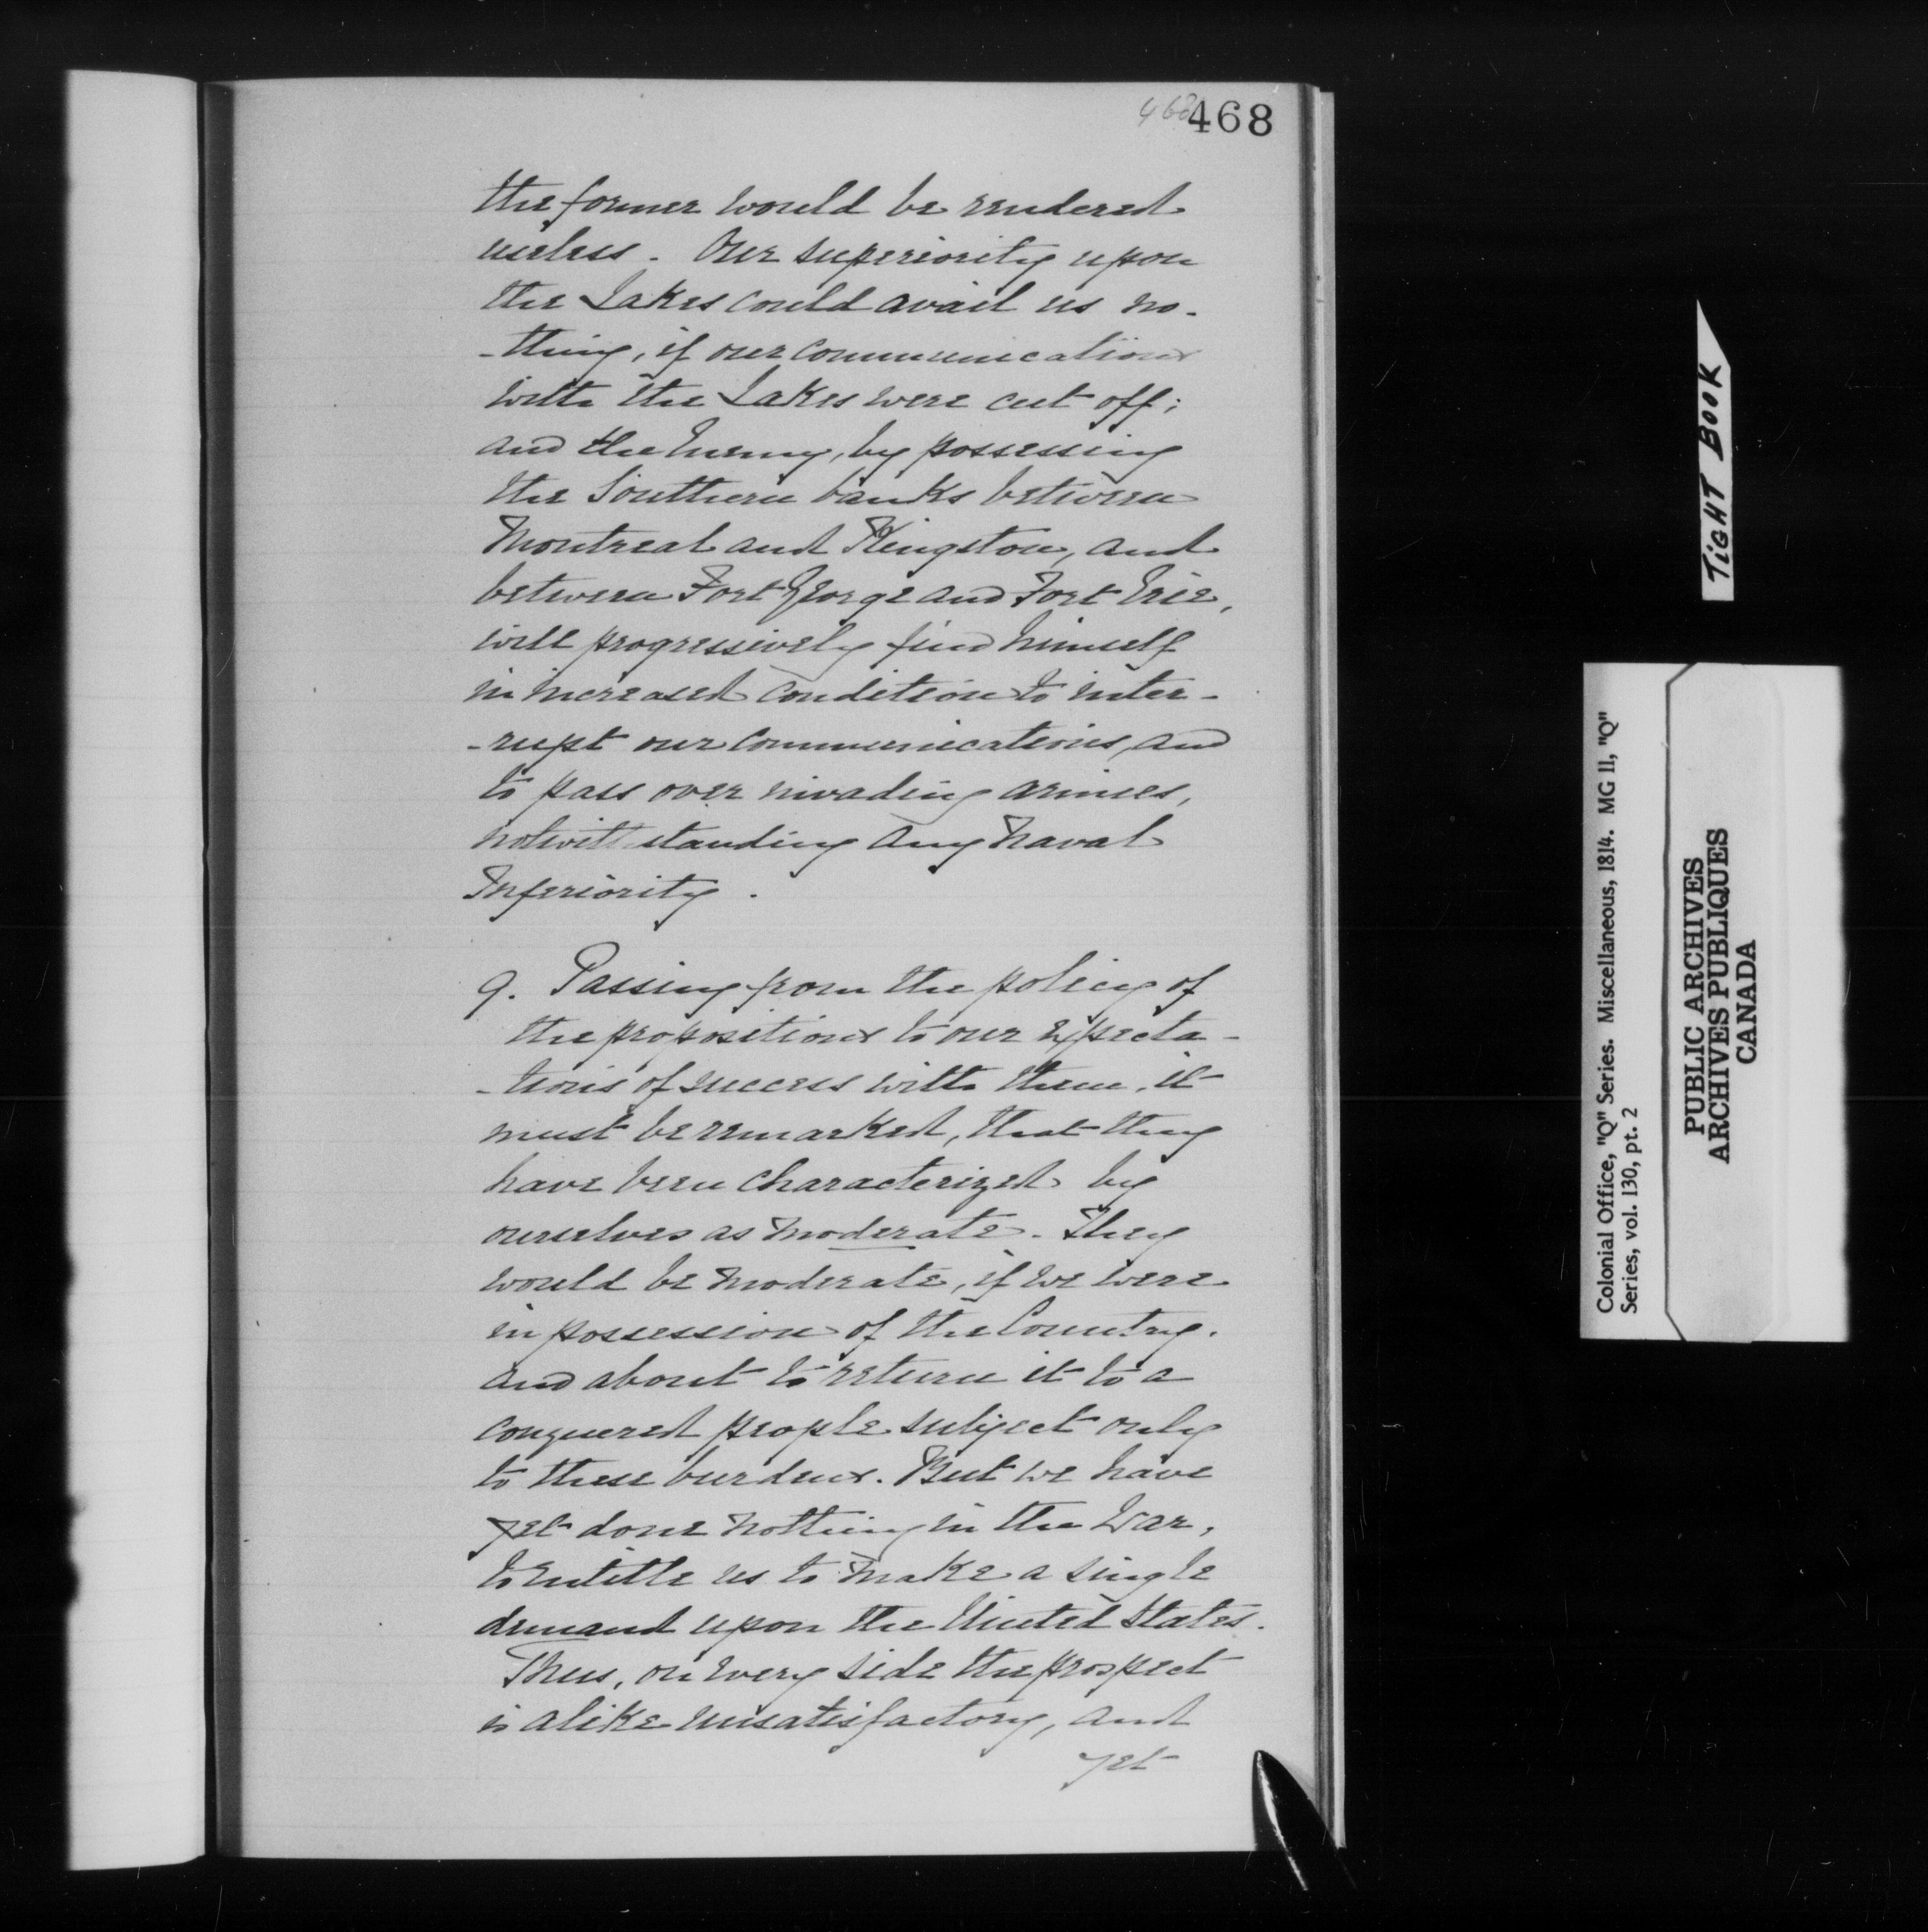 468
468
the former would be rendered
useless. Our superiority upon
the Lakes could avail us no-
-thing, if our communications
with the Lakes were cut off;
and the Enemy, by possessing
the Southern banks between
Montreal and Kingston, and
between Fort George and Fort Erie,
will progressively find himself
in increased condition to inter-
-rupt our communications, and
to pass over invading armies,
notwithstanding any Naval
Inferiority.
9. Passing from the policy of
the propositions to our expecta-
-tions of success with them, it
must be remarked, that they
have been characterized by
ourselves as moderate. They
would be moderate, if we were
in possession of the Country,
and about to return it to a
conquered people subject only
to these burdens. But we have
yet done nothing in the War,
to entitle us to make a single
demand upon the United States.
Thus, on every side the prospect
is alike unsatisfactory, and
yet
TIGHT BOOK
Colonial Office, "Q" Series. Miscellaneous, 1814. MG 11, "Q"
Series, vol. 130, pt. 2
PUBLIC ARCHIVES
ARCHIVES PUBLIQUES
CANADA